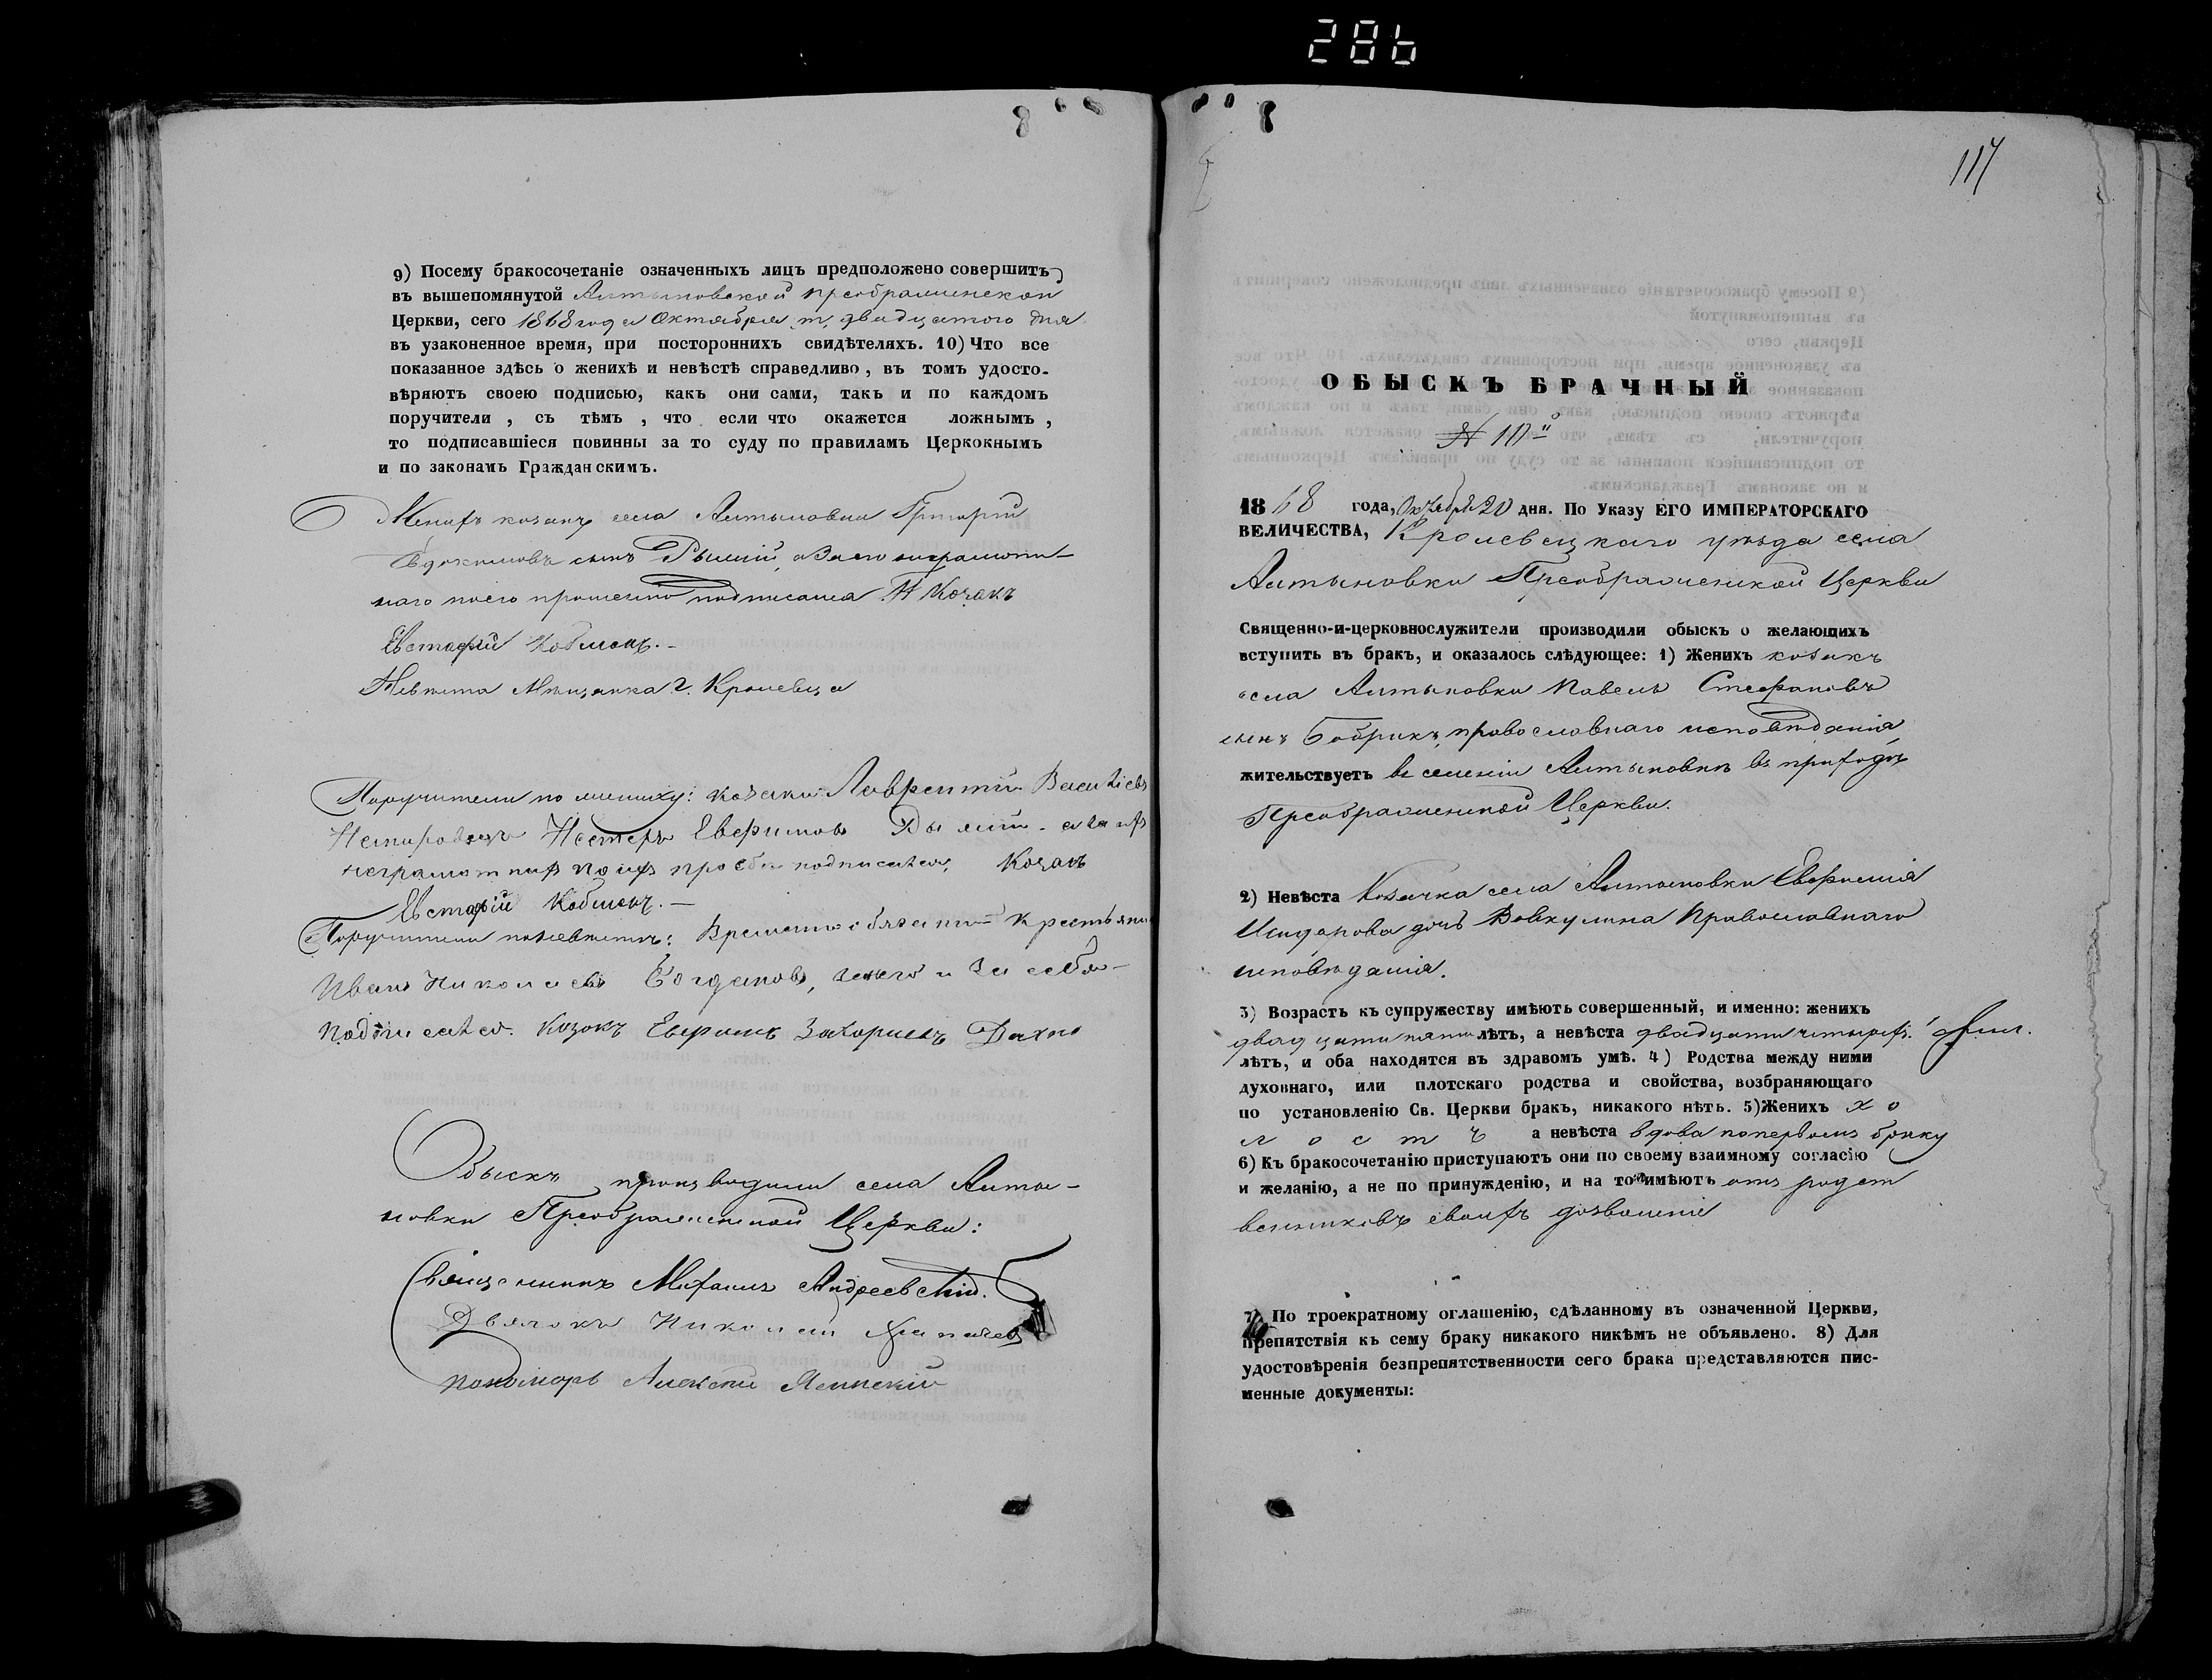 286
9) Посему бракосочетаніе означенныхъ лицъ предположено совершить
въ вышепомянутой Алтыновской Преображенской
Церкви, сего 1868 года Октября двадцатого дня
въ узаконенное время, при постороннихъ свидѣтеляхъ. 10) Что все
показанное здѣсь о женихѣ и невѣстѣ справедливо, въ томъ удосто-
вѣряютъ своею подписью, какъ они сами, такъ и по каждомъ
поручители, съ тѣмъ, что если что окажется ложнымъ,
то подписавшіеся повинны за то суду по правиламъ Церкокнымъ
и по законамъ Гражданскимъ.
Женихъ козакъ села Алтыновки Григорій
Евдокимовъ сынъ
наго по его прошенію подписался Козакъ
Евстафій
Невѣста Мѣщанка г. Кролевца
Поручители по жениху: козаки Лаврентій Василіевъ
Нестеръ Евфимовъ
неграмотныхъ по ихъ просбѣ подписался Козакъ
Евстафій
Поручители по невѣстѣ: Временно обязаный Крестьянинъ
Иванъ Николаевъ Богдановъ, за него и за себя
подписался. Козакъ Евфимъ
Обыскъ производили села Алты-
новки Преображенской Церкви:
Священникъ Михаилъ Андреевскій.
Дьячокъ Николай
Пономарь Алексѣй
117
ОБЫСКЪ БРАЧНЫЙ
1868 года, Октября 20 дня. По Указу ЕГО ИМПЕРАТОРСКАГО
ВЕЛИЧЕСТВА, Кролевецкаго уѣзда села
Алтыновки Преображенской Церкви
Священно-и-церковнослужители производили обыскъ о желающихъ
вступить въ бракъ, и оказалось слѣдующее: 1) Женихъ козакъ
села Алтыновки Павелъ Стефановъ
сынъ Бобрикъ, православнаго исповѣданія
жительствуетъ въ селеніи Алтыновкѣ въ приходѣ
Преображенской Церкви.
2) Невѣста Козачка села Алтыновки Евфимія
Исидорова дочь Вовкулина Православнаго
исповѣданія.
3) Возрастъ къ супружеству имѣютъ совершенный, и именно: женихъ
двадцати пяти лѣтъ, а невѣста двадцати четырехъ.
лѣтъ, и оба находятся въ здравомъ умѣ. 4) Родства между ними
духовнаго, или плотскаго родства и свойства, возбраняющаго
по установленію Св. Церкви бракъ, никакого нѣтъ. 5) Женихъ хо
лостъ а невѣста вдова по первомъ браку
6) Къ бракосочетанію приступаютъ они по своему взаимному согласію
и желанію, а не по принужденію, и на то имѣютъ отъ родст
венниковъ своихъ дозволеніе
7) По троекратному оглашенію, сдѣланному въ означенной Церкви,
препятствія къ сему браку никакого никѣмъ не объявлено. 8) Для
удостовѣренія безпрепятственности сего брака представляются пис-
менные документы: